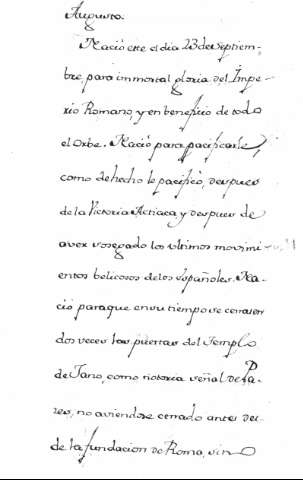 Augusto.
Nació este el dia 23 de Septiem-
bre, para immortal gloria del Impe-
rio Romano, y en beneficio de todo
el Orbe. Nació para pacificarle,
como de hecho le pacificò, despues
de la Victoria Actiaca, y despues de
aver sosegado los ultimos movimi-
entos belicosos de los Españoles. Na-
ciò para que en su tiempo se cerrasen
dos veces las puertas del Templo
de Jano, como notoria señal de Pa-
zes, no aviendose cerrado antes des-
de la fundacion de Roma, sino